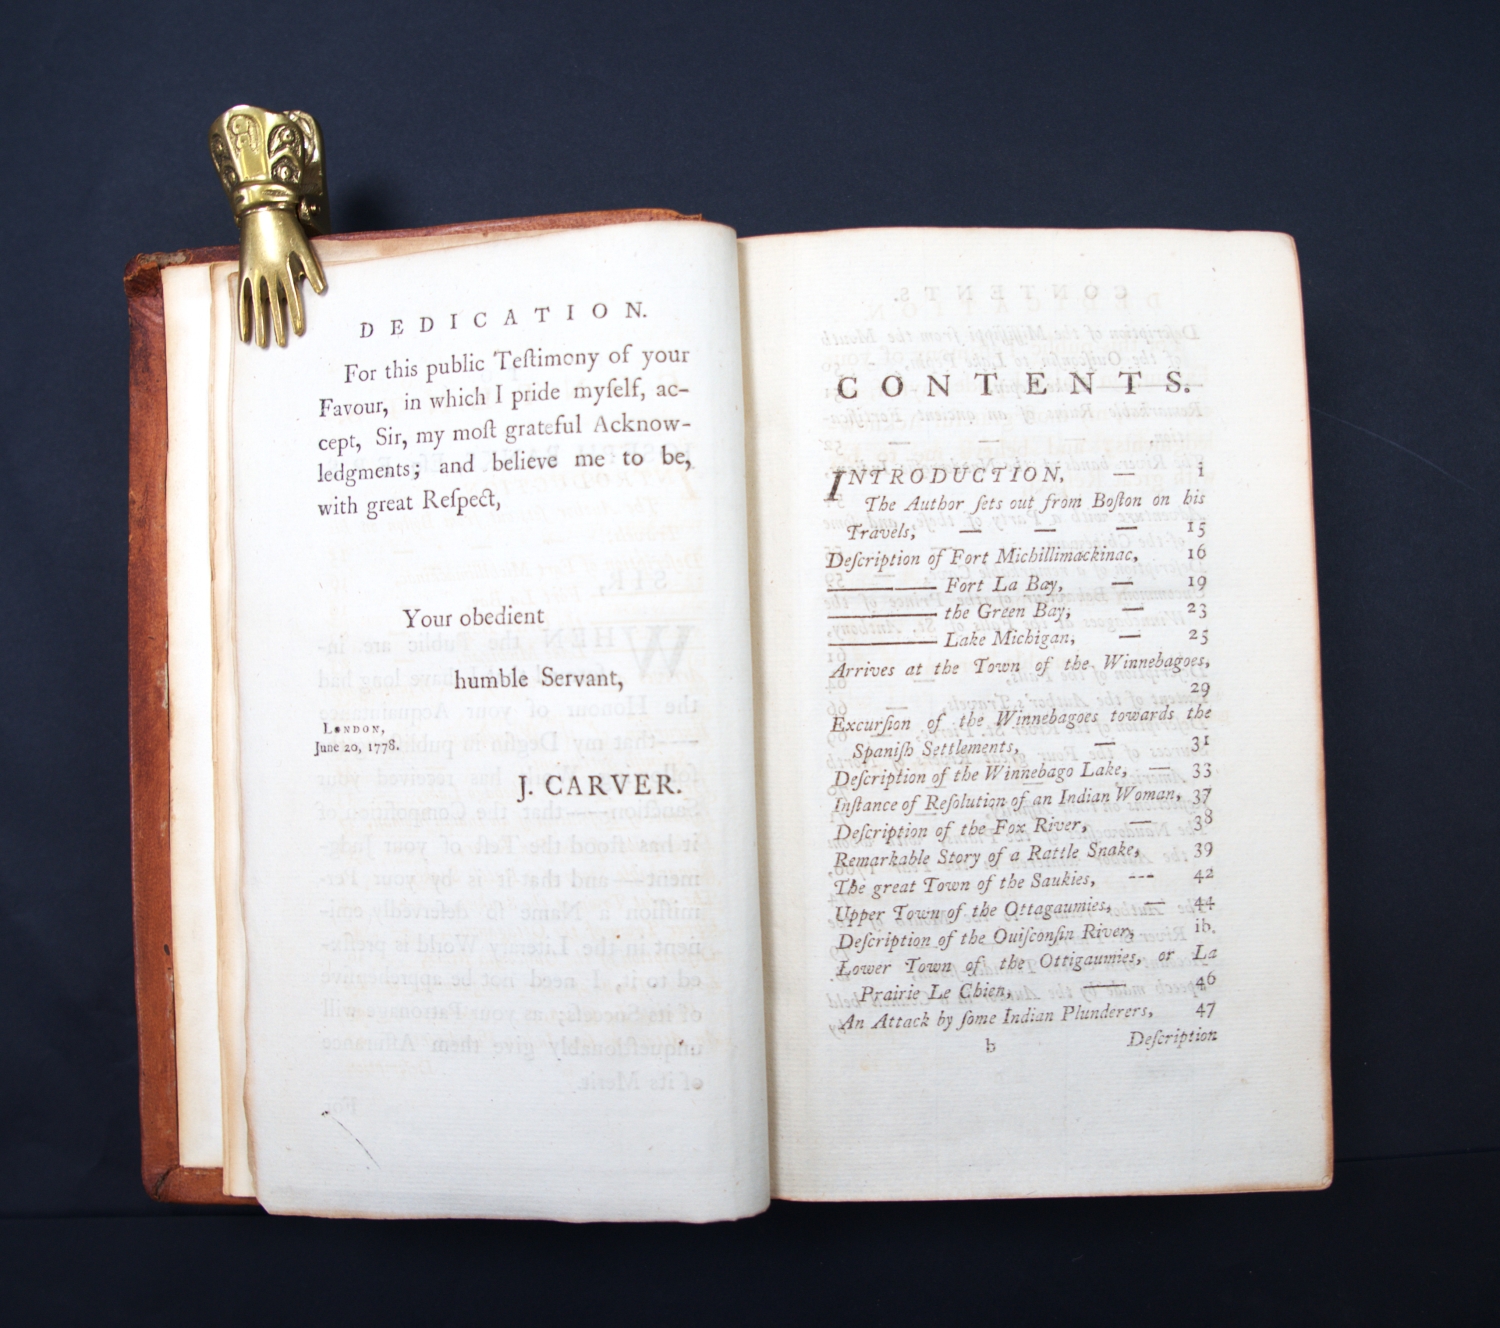 DEDICATION.
For this public Teſtimony of your
Favour, in which I pride myſelf, ac-
cept, Sir, my moſt grateful Acknow-
ledgments; and believe me to be,
with great Reſpect,
Your obedient
humble Servant,
LONDON,
June 20, 1778.
J. CARVER.
CONTENTS.
INTRODUCTION, — i
The Author ſets out from Boſton on his
Travels, — — — 15
Deſcription of Fort Michillimackinac, 16
——— Fort La Bay, — 19
——— the Green Bay, — 23
——— Lake Michigan, — 25
Arrives at the Town of the Winnebagoes,
29
Excurſion of the Winnebagoes towards the
Spaniſh Settlements, — 31
Deſcription of the Winnebago Lake, — 33
Inſtance of Reſolution of an Indian Woman, 37
Deſcription of the Fox River, — 38
Remarkable Story of a Rattle Snake, 39
The great Town of the Saukies, --- 42
Upper Town of the Ottagaumies, — 44
Deſcription of the Ouiſconſin River, ib.
Lower Town of the Ottigaumies, or La
Prairie Le Chien, — 46
An Attack by ſome Indian Plunderers, 47
b Deſcription